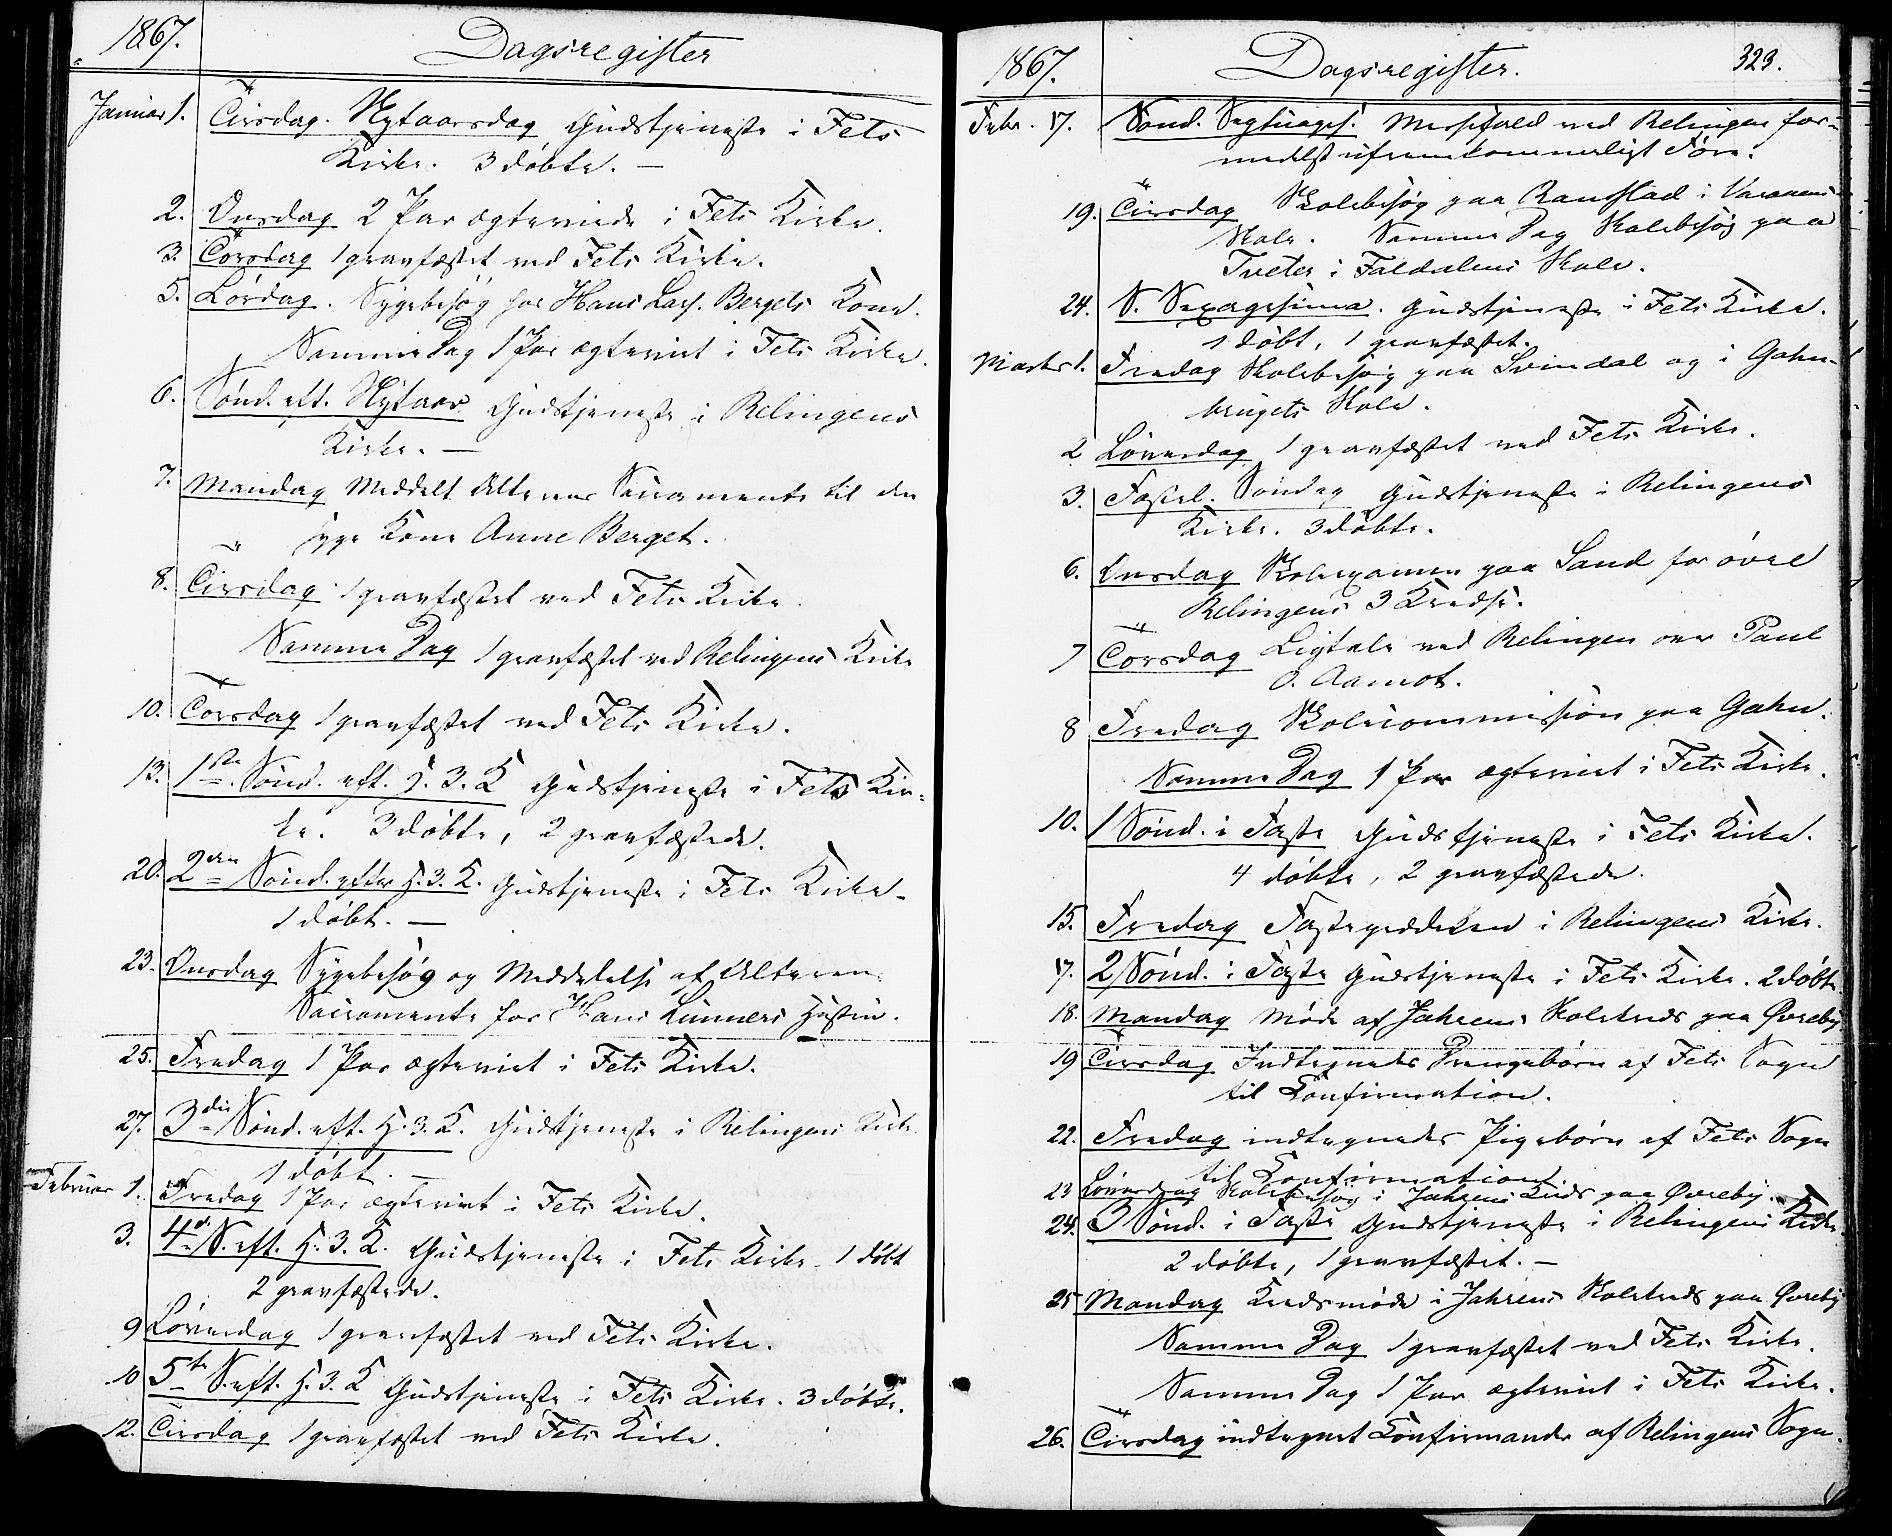 1867. Dagsregister
Januar 1. Tirsdag. Nytaarsdag Gudstjeneste i Fets
Kirke. 3 døbte. —
2. Onsdag 2 Par ægteviede i Fets Kirke.
3. Torsdag 1 gravfæstet ved Fets Kirke.
5. Lørdag. Sygebesøg hos Hans Lars. Bergets Kone.
Samme Dag 1 Par ægteviet i Fets Kirke.
6. Sønd. eft. Nytaar Gudstjeneste i Relingens
Kirke. —
7. Mandag Meddelt Alterens Sacramente til den
syge Kone Anne Berget.
8. Tirsdag 1 gravfæstet ved Fets Kirke.
Samme Dag 1 gravfæstet ved Relingens Kirke
10. Torsdag 1 gravfæstet ved Fets Kirke.
13. 1ste Sønd. eft. H. 3. K Gudstjeneste i Fets Kir-
ke. 3 døbte, 2 gravfæstede.
20. 2den Sønd. efter H. 3. K. Gudstjeneste i Fets Kirke.
1 døbt. —
23. Onsdag Sygebesøg og Meddelelse af Alterens
Sacramente for Hans Lunners Hustru.
25. Fredag 1 Par ægteviet i Fets Kirke.
27. 3die Sønd. eft. H. 3. K. Gudstjeneste i Relingens Kirke.
1 døbt. —
Februar 1. Fredag 1 Par ægteviet i Fets Kirke.
3. 4de S. eft. H. 3. K. Gudstjeneste i Fets Kirke. 1 døbt
2 gravfæstede.
9 Løverdag 1 gravfæstet ved Fets Kirke.
10 5te S. eft. H. 3. K Gudstjeneste i Fets Kirke. 3 døbte.
12. Tirsdag 1 gravfæstet ved Fets Kirke.
1867. Dagsregister. 323.
Febr. 17. Sønd. Septuages. Messefald ved Relingen for-
medelst ufremkommeligt Føre.
19. Tirsdag Skolebesøg paa Ramstad i
Skole. Samme Dag Skolebesøg paa
Tveter i Faldalens Skole.
24. S. Sexagesima. Gudstjeneste i Fets Kirke.
1 døbt, 1 gravfæstet.
Marts 1. Fredag Skolebesøg paa Svindal og i Gahn-
brugets Skole.
2 Løverdag 1 gravfæstet ved Fets Kirke.
3. Fastel. Søndag Gudstjeneste i Relingens
Kirke. 3 døbte.
6. Onsdag Skoleexamen paa Sand for øvre
Relingens 3 Kredse.
7 Torsdag Ligtale ved Relingen over Paul
O. Aamot.
8 Fredag Skolecommission paa Gahn.
Samme Dag 1 Par ægteviet i Fets Kirke.
10. 1 Sønd. i Faste Gudstjeneste i Fets Kirke.
4 døbte, 2 gravfæstede.
15. Fredag Fasteprædiken i Relingens Kirke.
17. 2 Sønd. i Faste Gudstjeneste i Fets Kirke. 2 døbte
18. Mandag Møde af Jahrens Skolekreds paa Øvreby
19 Tirsdag Indtegnedes Drengebørn af Fets Sogn
til Confirmation.
22. Fredag indtegnedes Pigebørn af Fets Sogn
til Confirmation.
23 Løverdag Skolebesøg i Jahrens Kreds paa Øvreby.
24. 3 Sønd. i Faste Gudstjeneste i Relingens Kirke.
2 døbte, 1 gravfæstet. —
25 Mandag Kredsmøde i Jahrens Skolekreds paa Øvreby
Samme Dag 1 gravfæstet ved Fets Kirke.
Samme Dag 1 Par ægteviet i Fets Kirke.
26. Tirsdag indtegnet Confirmande af Relingens Sogn.